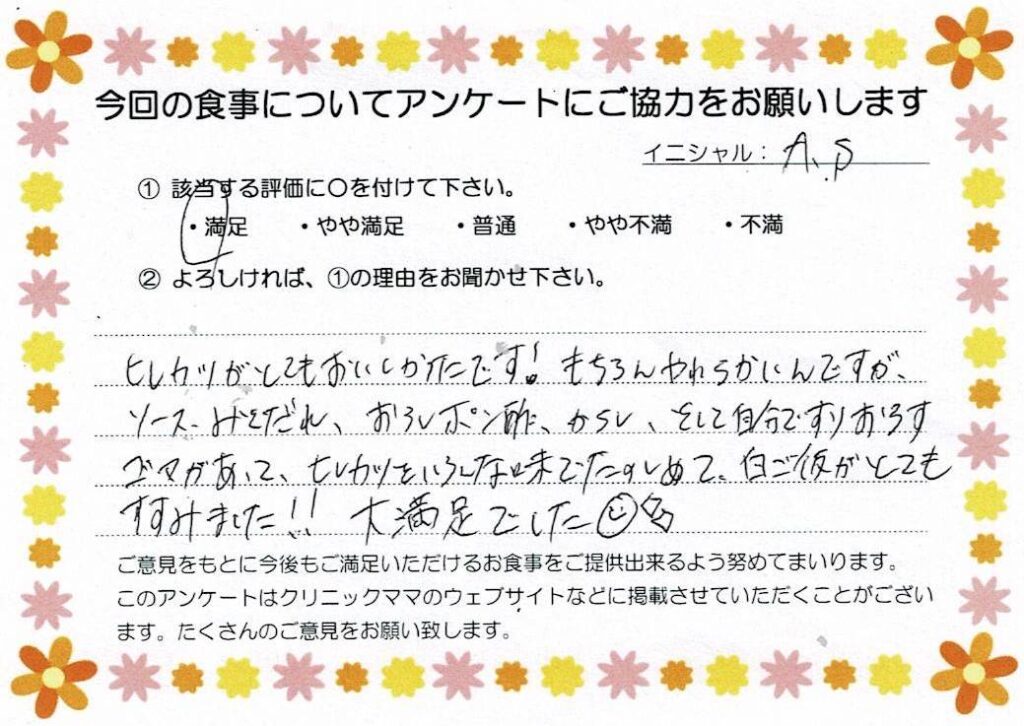 今回の食事についてアンケートにご協力をお願いします
イニシャル： A.S
① 該当する評価に○を付けて下さい。
・満足 ・やや満足 ・普通 ・やや不満 ・不満
② よろしければ、①の理由をお聞かせ下さい。
ヒレカツがとてもおいしかったです! もちろんやわらかいんですが、
ソース、みそだれ、おろしポン酢、からし、そして自分ですりおろす
ゴマがあって、ヒレカツをいろんな味でたのしめて、白ご飯がとても
すすみました!! 大満足でした
ご意見をもとに今後もご満足いただけるお食事をご提供出来るよう努めてまいります。
このアンケートはクリニックママのウェブサイトなどに掲載させていただくことがござい
ます。たくさんのご意見をお願い致します。